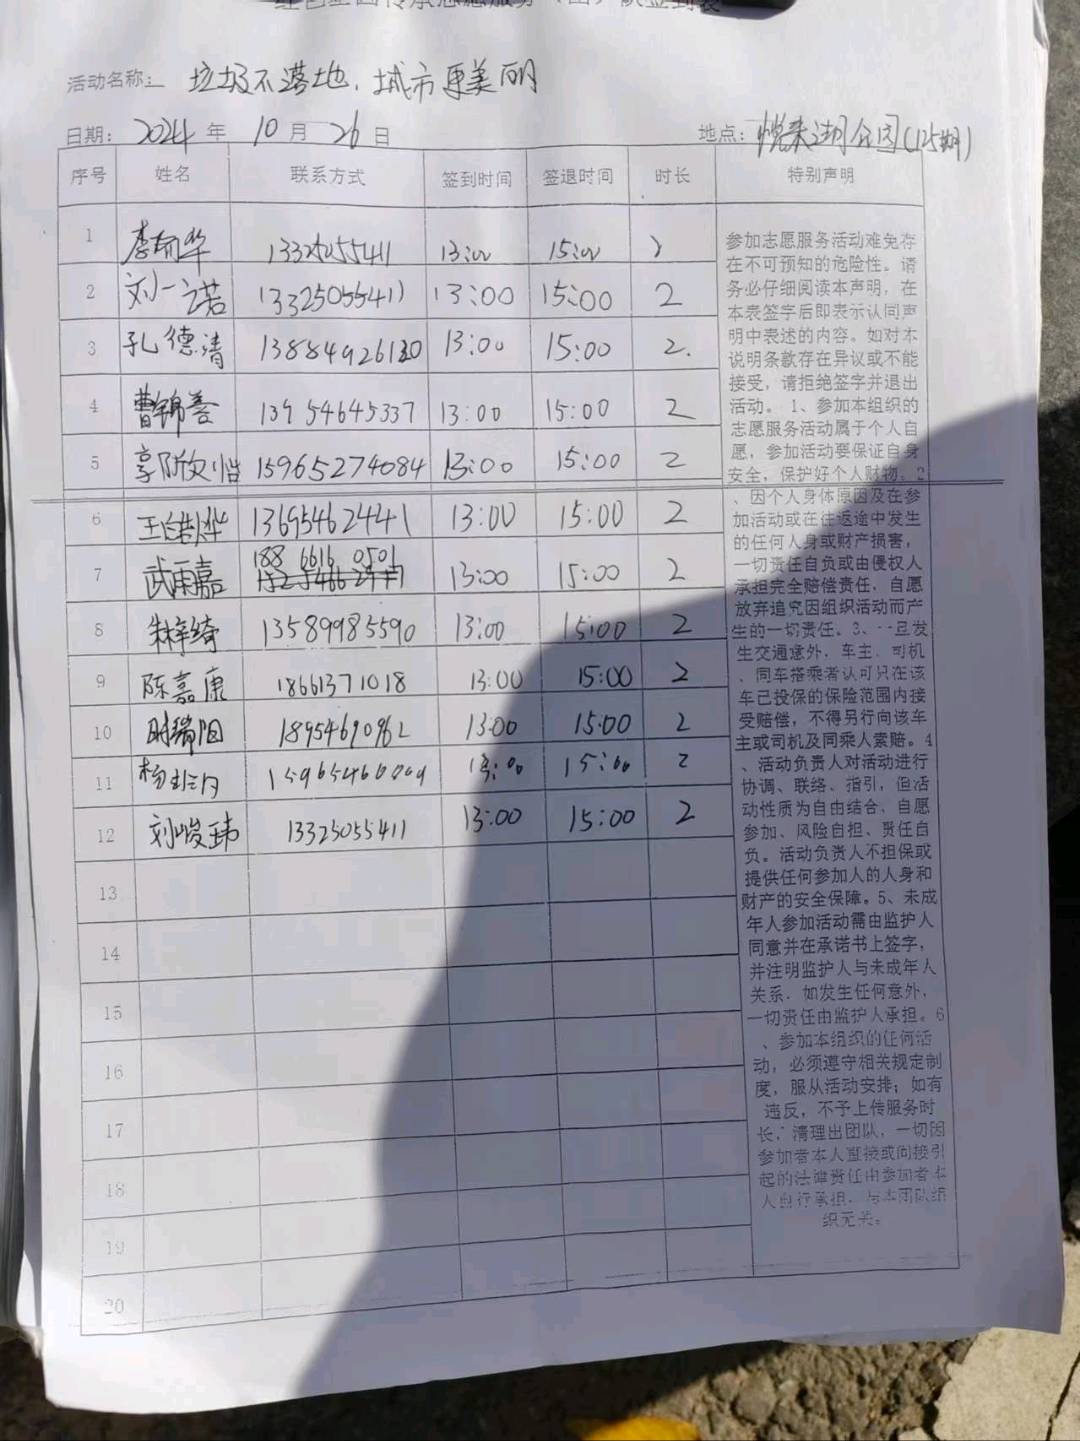 活动名称： 垃圾不落地，城市更美丽
日期： 2024 年 10 月 26 日 地点：悦来湖公园(125期)
序号 姓名 联系方式 签到时间 签退时间 时长 特别声明
1 13325055411 13:00 15:00 2
2 刘一诺 13325055411 13:00 15:00 2
3 孔德清 13:00 15:00 2.
4 曹锦善 13954645337 13:00 15:00 2
5 15965274084 13:00 15:00 2
6 13695462441 13:00 15:00 2
7 武雨嘉 188 6616 0501 13:00 15:00 2
8 朱梓绮 13589985590 13:00 15:00 2
9 陈嘉康 18661371018 13:00 15:00 2
10 时瑞阳 18954690962 13:00 15:00 2
11 13:00 15:00 2
12 刘峻玮 13325055411 13:00 15:00 2
13
14
15
16
17
18
19
20
参加志愿服务活动难免存
在不可预知的危险性。请
务必仔细阅读本声明，在
本表签字后即表示认同声
明中表述的内容。如对本
说明条款存在异议或不能
接受，请拒绝签字并退出
活动。1、参加本组织的
志愿服务活动属于个人自
愿，参加活动要保证自身
安全，保护好个人财物。2
、因个人身体原因及在参
加活动或在往返途中发生
的任何人身或财产损害，
一切责任自负或由侵权人
承担完全赔偿责任，自愿
放弃追究因组织活动而产
生的一切责任。3、一旦发
生交通意外，车主、司机
、同车搭乘者认可只在该
车已投保的保险范围内接
受赔偿，不得另行向该车
主或司机及同乘人索赔。4
、活动负责人对活动进行
协调、联络、指引，但活
动性质为自由结合，自愿
参加、风险自担、责任自
负。活动负责人不担保或
提供任何参加人的人身和
财产的安全保障。5、未成
年人参加活动需由监护人
同意并在承诺书上签字，
并注明监护人与未成年人
关系．如发生任何意外，
一切责任由监护人承担。6
、参加本组织的任何活
动，必须遵守相关规定制
度，服从活动安排；如有
违反，不予上传服务时
长，清理出团队，一切因
参加者本人直接或间接引
起的法律责任由参加者本
人自行承担，与本团队组
织无关。